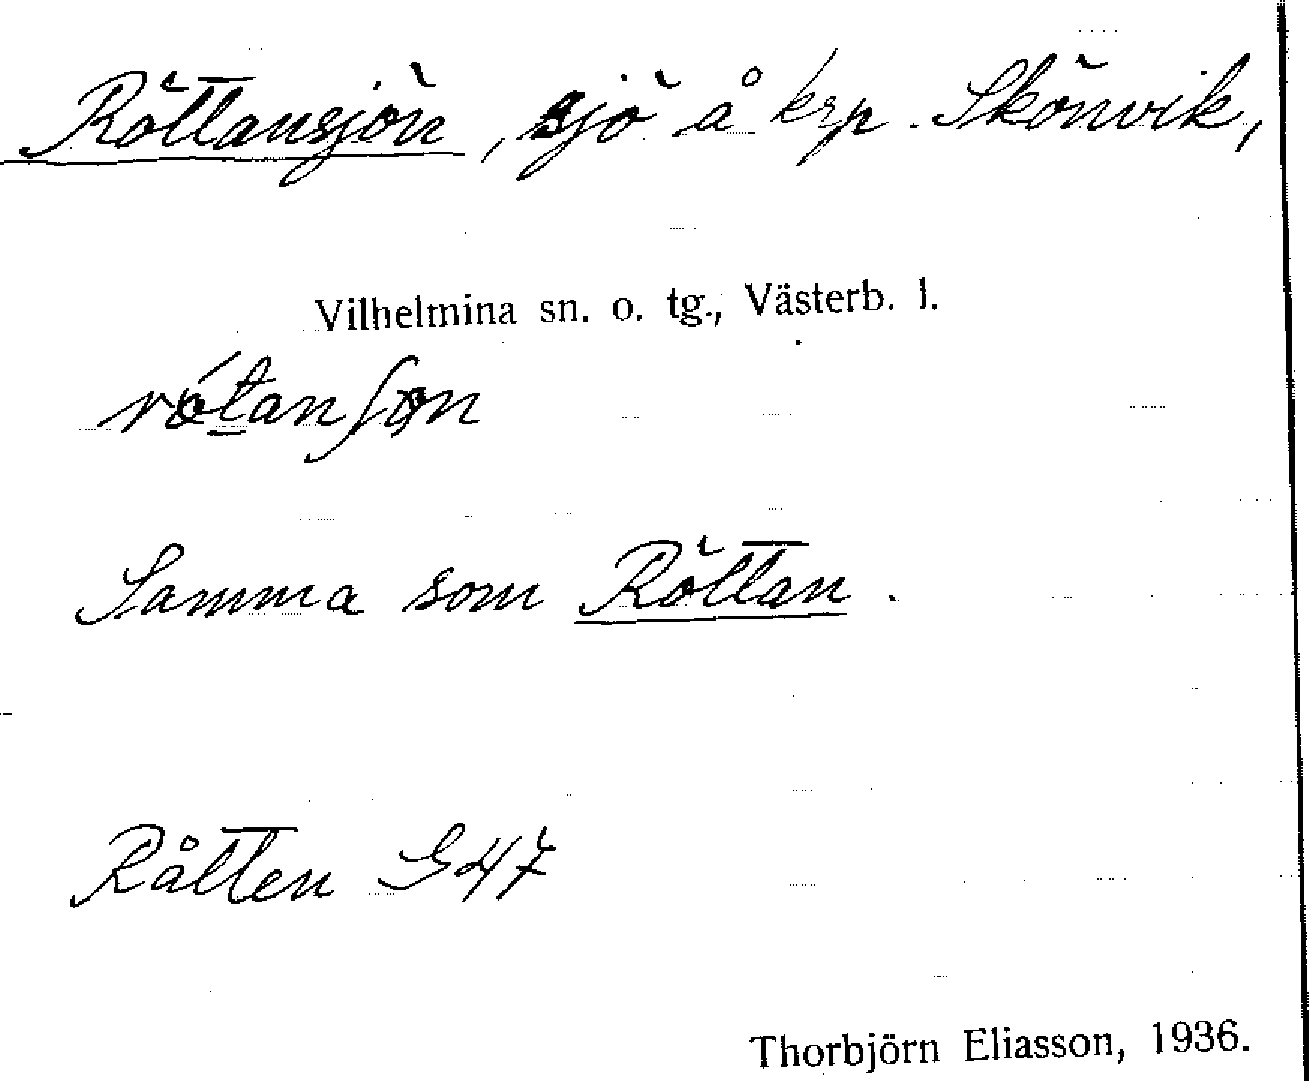 Röttansjön, sjö å krp. Skönvik,
Vilhelmina sn. o. tg., Västerb. l.
Samma som Röttan.
Råtten G47
Thorbjörn Eliasson, 1936.